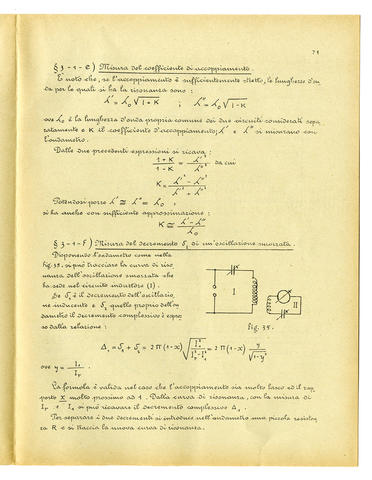 71
§ 3-1-e) Misura del coefficiente di accoppiamento.
È noto che, se l'accoppiamento è sufficientemente stretto, le lunghezze d'on
da per le quali si ha la risonanza sono:
λ' = λ₀ √1+K ; λ'' = λ₀ √1-K
ove λ₀ è la lunghezza d'onda propria comune dei due circuiti considerati sepa
ratamente e K il coefficiente d'accoppiamento; λ' e λ'' si misurano con
l'ondametro.
Dalle due precedenti espressioni si ricava:
(1+K)/(1-K) = λ'²/λ''² da cui
K = (λ'² - λ''²)/(λ'² + λ''²)
Potendosi porre λ' ≅ λ'' ≅ λ₀ ,
si ha anche con sufficiente approssimazione:
K ≅ (λ' - λ'')/λ₀
§ 3-1-f) Misura del decremento δ₁ di un'oscillazione smorzata.
Disponendo l'ondametro come nella
fig. 35. si può tracciare la curva di riso
nanza dell'oscillazione smorzata che
ha sede nel circuito induttore (I).
Se δ₁ è il decremento dell'oscillazio
ne inducente e δ₂ quello proprio dell'on
dametro il decremento complessivo è espre
so dalla relazione:
I
II
Fig. 35.
Δ₁ = δ₁ + δ₂ = 2π (1-x) √(I₁²/(Iᵣ²-I₁²)) = 2π (1-x) y/√(1-y²)
ove y = I₁/Iᵣ .
La formola è valida nel caso che l'accoppiamento sia molto lasco ed il rap
porto x molto prossimo ad 1. Dalla curva di risonanza, con la misura di
Iᵣ e I₁ si può ricavare il decremento complessivo Δ₁.
Per separare i due decrementi si introduce nell'ondametro una piccola resisten
za R e si traccia la nuova curva di risonanza.